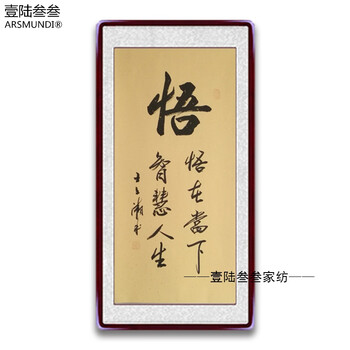 壹陆叁叁
ARSMUNDI®
悟
悟在當下
智慧人生
——壹陆叁叁家纺——